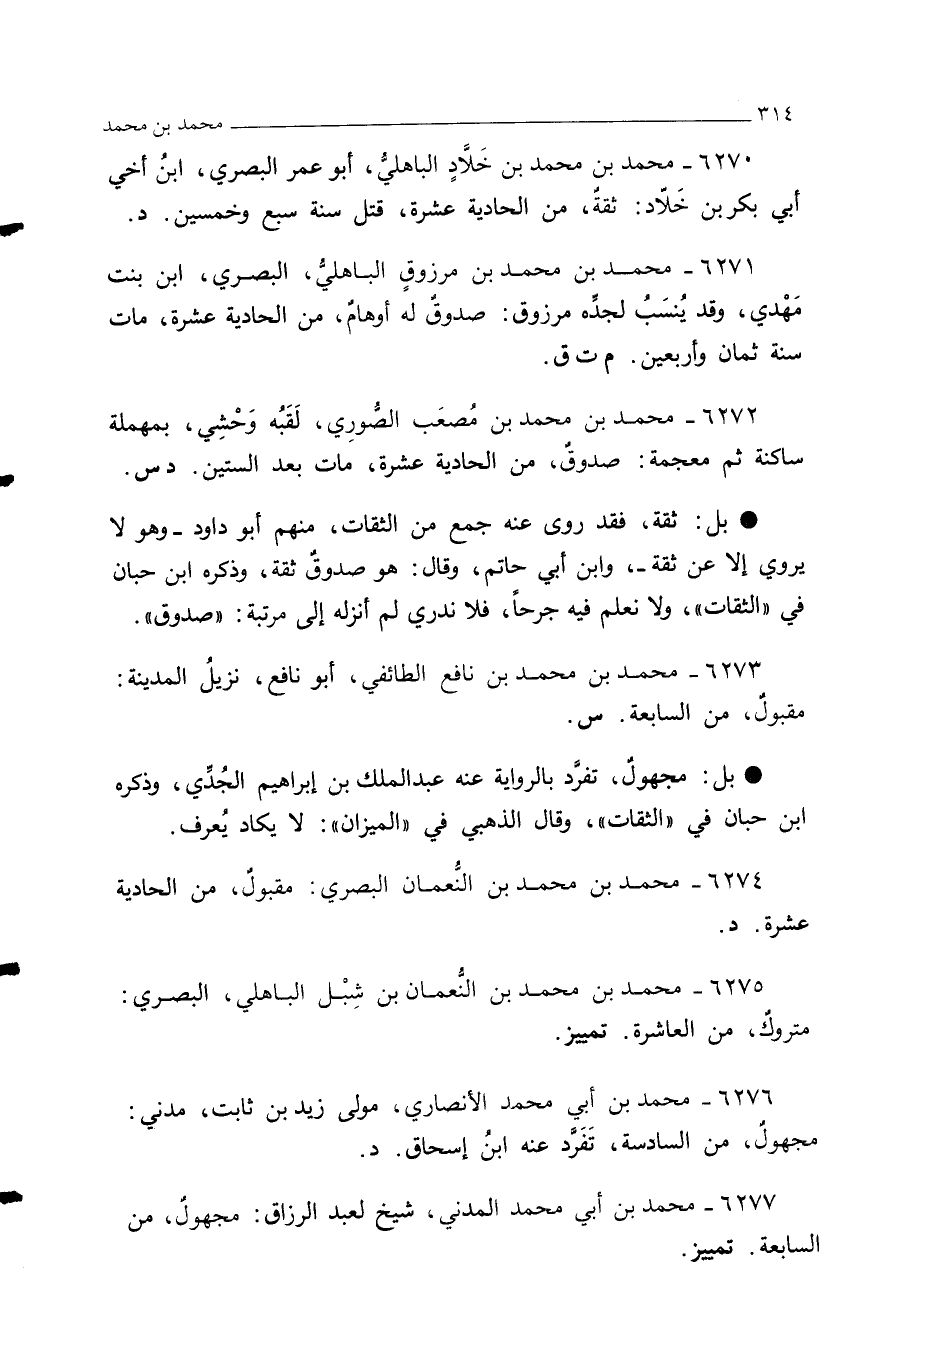 ٣١٤ محمد بن محمد
٦٢٧٠ ـ محمد بن محمد بن خَلَّادٍ الباهليُّ، أبو عمر البصري، ابنُ أخي
أبي بكر بن خَلّاد: ثقةٌ، من الحادية عشرة، قتل سنة سبع وخمسين. د.
٦٢٧١ ـ محمد بن محمد بن مرزوقٍ الباهليُّ، البصري، ابن بنت
مَهْدي، وقد يُنسَبُ لجدِّه مرزوق: صدوقٌ له أوهامٌ، من الحادية عشرة، مات
سنة ثمان وأربعين. م ت ق.
٦٢٧٢ ـ محمد بن محمد بن مُصعَب الصُّورِي، لَقَبُه وَحْشِي، بمهملة
ساكنة ثم معجمة: صدوقٌ، من الحادية عشرة، مات بعد الستين. د س.
● بل: ثقة، فقد روى عنه جمع من الثقات، منهم أبو داود ـ وهو لا
يروي إلا عن ثقة ـ، وابن أبي حاتم، وقال: هو صدوقٌ ثقة، وذكره ابن حبان
في «الثقات»، ولا نعلم فيه جرحاً، فلا ندري لم أنزله إلى مرتبة: «صدوق».
٦٢٧٣ ـ محمد بن محمد بن نافع الطائفي، أبو نافع، نزيلُ المدينة:
مقبولٌ، من السابعة. س.
● بل: مجهولٌ، تفرَّد بالرواية عنه عبدالملك بن إبراهيم الجُدِّي، وذكره
ابن حبان في «الثقات»، وقال الذهبي في «الميزان»: لا يكاد يُعرف.
٦٢٧٤ ـ محمد بن محمد بن النُّعمان البصري: مقبولٌ، من الحادية
عشرة. د.
٦٢٧٥ ـ محمد بن محمد بن النُّعمان بن شِبْل الباهلي، البصري:
متروكٌ، من العاشرة. تمييز.
٦٢٧٦ ـ محمد بن أبي محمد الأنصاري، مولى زيد بن ثابت، مدني:
مجهولٌ، من السادسة، تَفَرَّد عنه ابنُ إسحاق. د.
٦٢٧٧ ـ محمد بن أبي محمد المدني، شيخ لعبد الرزاق: مجهولٌ، من
السابعة. تمييز.